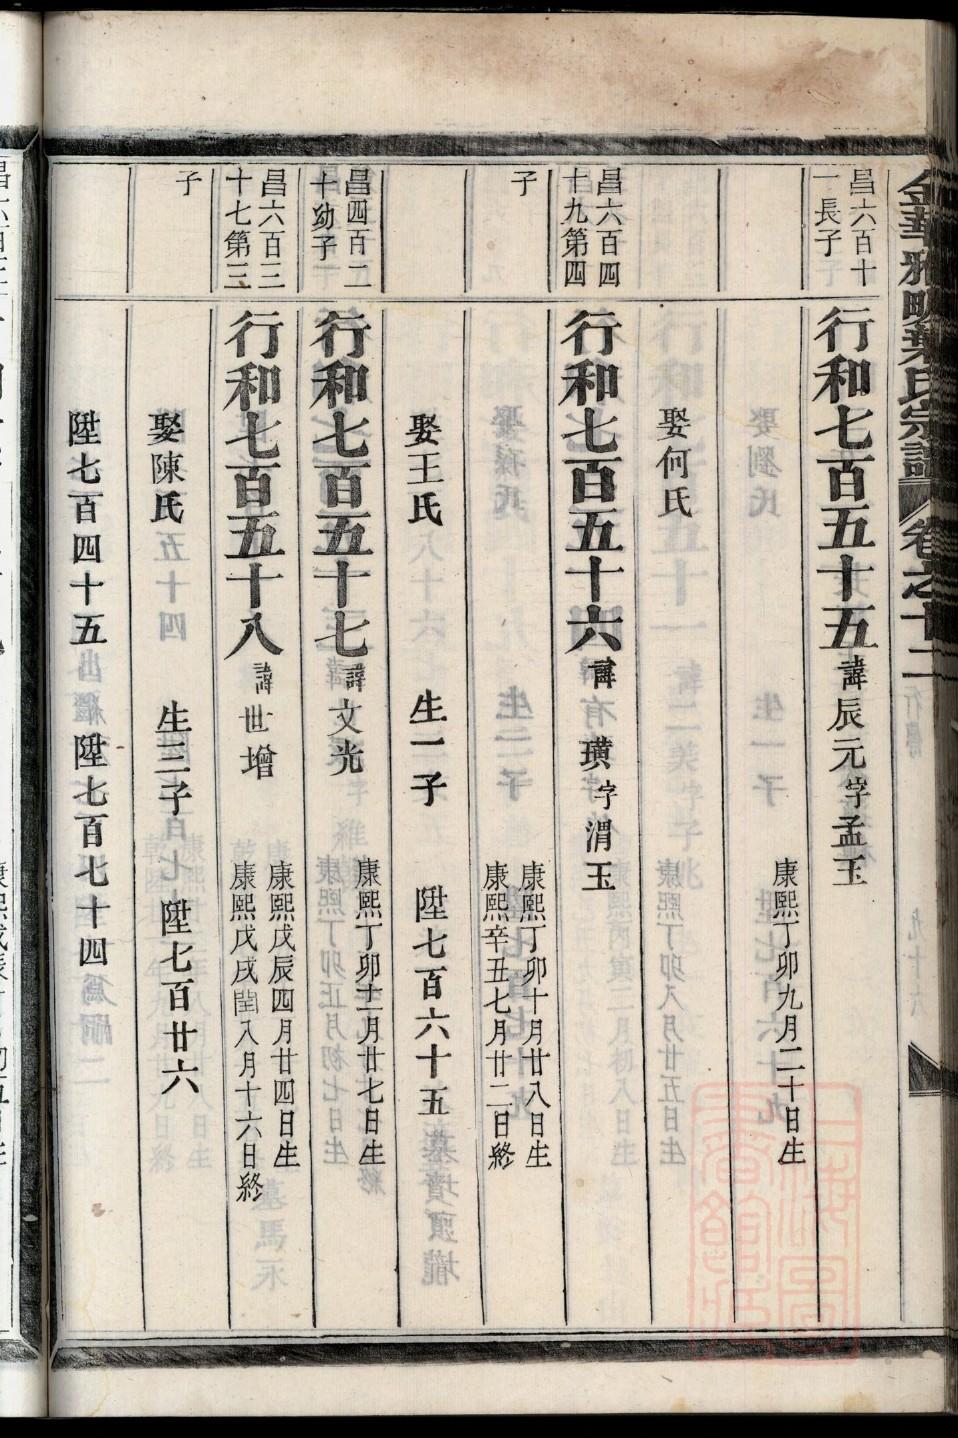 金華雅畈葉氏宗譜 卷之十二
昌六百十
一長子
行和七百五十五 諱辰元字孟玉
康熙丁卯九月二十日生
娶何氏
昌六百四
十九第四
子
行和七百五十六 諱璜字渭玉
康熙丁卯十月廿八日生
康熙辛丑七月廿二日終
娶王氏 生一子 陞七百六十五
昌四百二
十幼子
行和七百五十七 諱文光
康熙丁卯十一月廿七日生
昌六百三
十七第三
子
行和七百五十八 諱世增
康熙戊辰四月廿四日生
康熙戊戌閏八月十六日終
娶陳氏 生三子 陞七百廿六
陞七百四十五 陞七百七十四